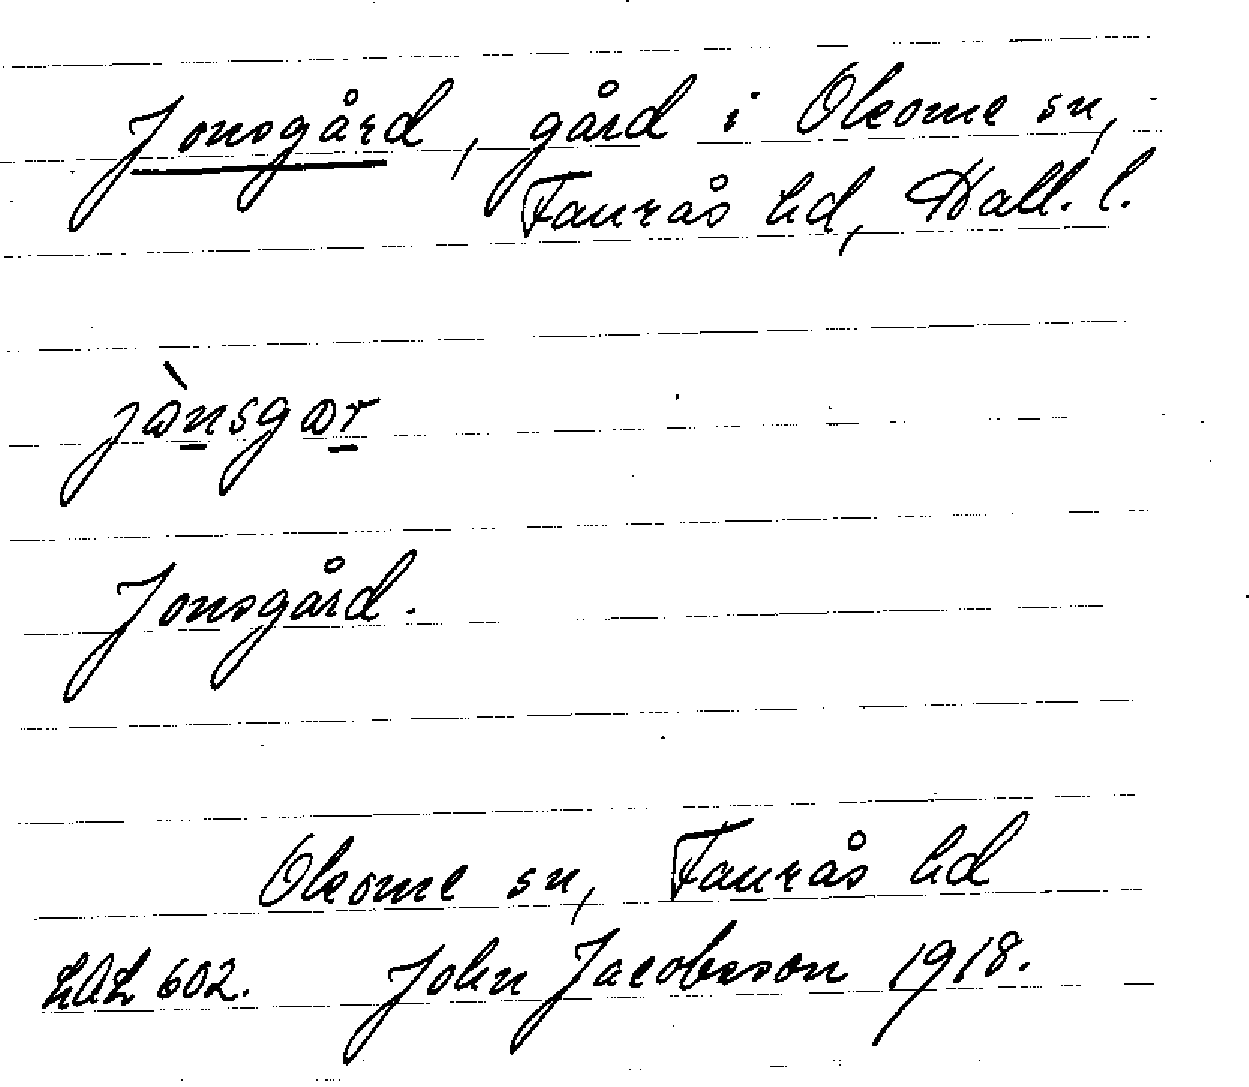 Jonsgård, gård i Okome sn,
Faurås hd, Hall. l.
jɷ̀nsgɷr
Jonsgård.
Okome sn, Faurås hd
LAL 602. John Jacobsson 1918.